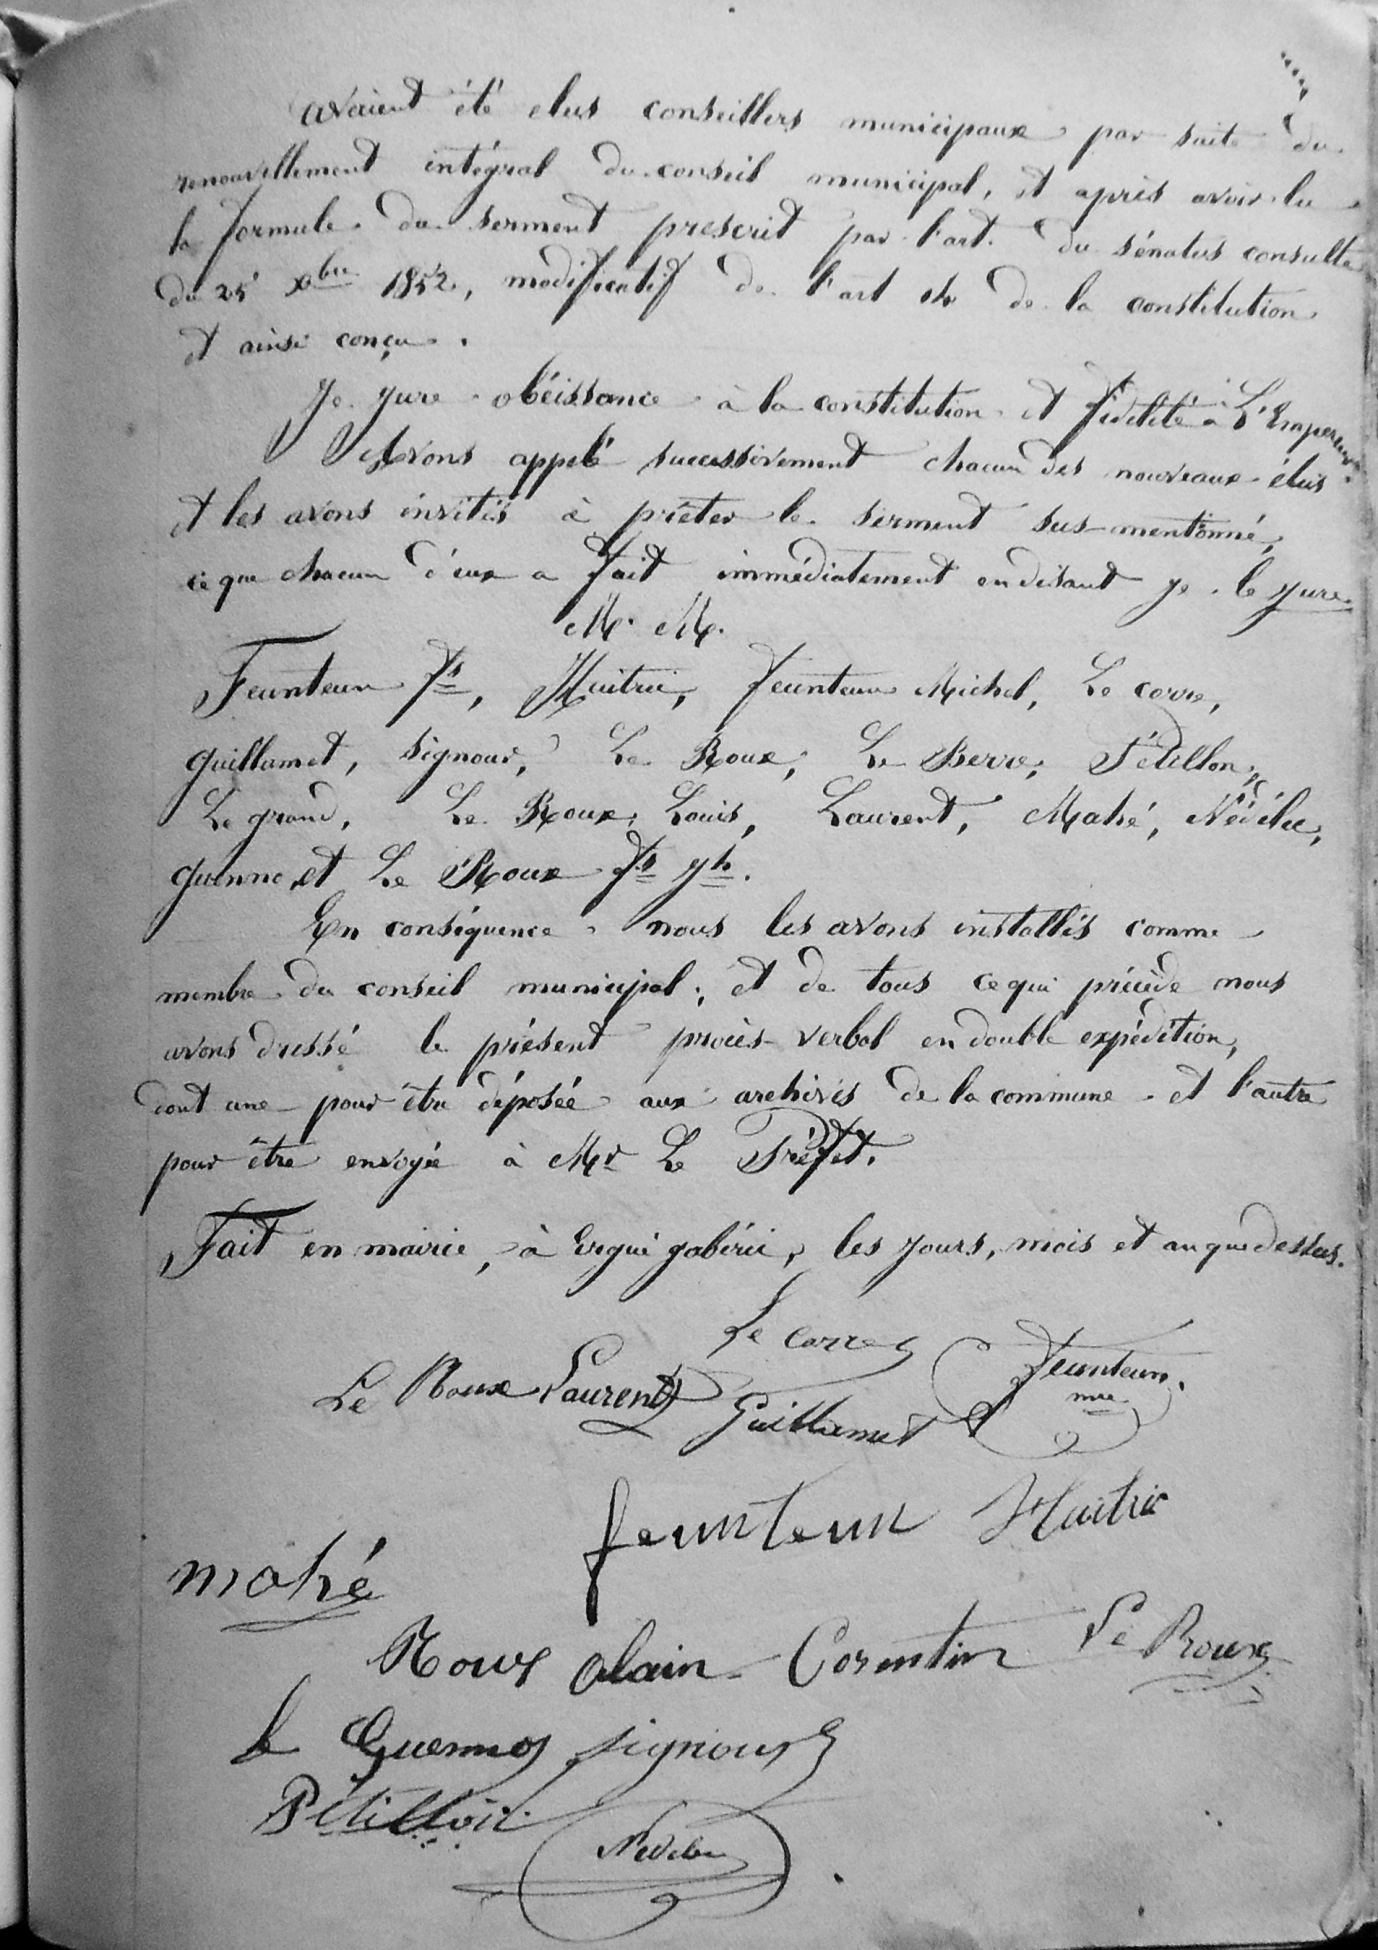 avaient été elus conseillers municipaux par suite du
renouvellement intégral du conseil municipal, et après avoir lu
la formule du serment prescrit par l'art. du sénatus consulte
du 25 Xbre 1852, modificatif de l'art 14 de la constitution
et ainsi conçu.
Je jure obéissance à la constitution et fidélité à L'Empereur.
Avons appelé successivement chacun des nouveaux élus
et les avons invités à prêter le serment sus-mentionné,
ce que chacun d'eux a fait immédiatement en disant je le jure.
M. M.
Feunteun fs, Huitric, feunteun Michel, Le corre,
guillamet, signour, Le Roux, Le Berre, Pétillon,
Le grand, Le Roux Louis, Laurent, Mahé, Nédélec,
guenno, et Le Roux fs yh.
En conséquence nous les avons installés comme
membre du conseil municipal; et de tous ce qui précède nous
avons dressé le présent procès-verbal en double expédition,
dont une pour être déposée aux archives de la commune et l'autre
pour être envoyée à Mr Le Préfet.
Fait en mairie, à Ergué gabéric, les jours, mois et an que dessus.
Le Corre
Feunteun
mre
Le Roux Laurent
Guillamet
feunteun Huitric
mahé
Roux alain Corentin Le Roux
le Guennos signour
Pétillon
Nedelec